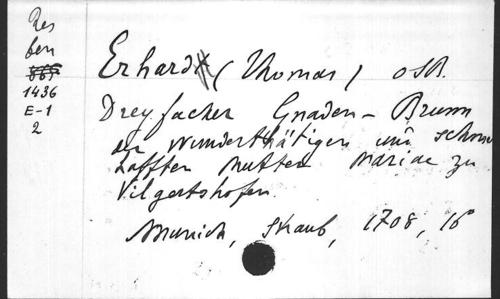 Res
ben
869
1436
E-1
2
Erhard (Thomas) OSB.
Dreyfacher Gnaden-Brunn
der wunderthätigen und schmertz
hafften Mutter Mariae zu
Vilgertshofen.
Munich, Straub, 1708, 16°